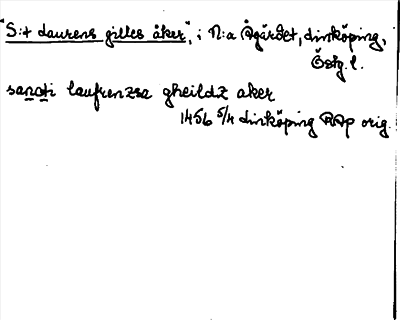 "S:t Laurens gilles åker", i N:a Ågärdet, Linköping,
Östg. l.
sancti laufrenzsa gheildz aker
1456 5/4 Linköping RAp orig.